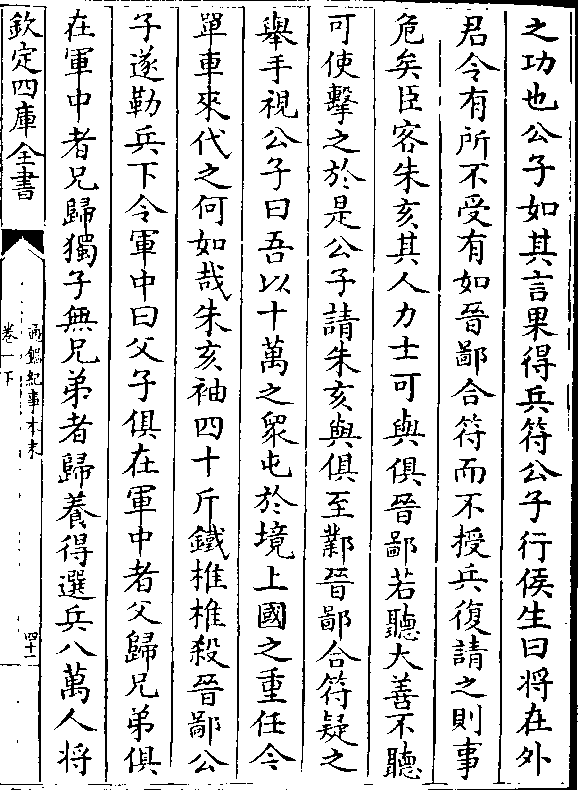 之功也公子如其言果得兵符公子行侯生曰将在外
君令有所不受有如晉鄙合符而不授兵復請之則事
危矣臣客朱亥其人力士可與俱晉鄙若聽大善不聽
可使擊之於是公子請朱亥與俱至鄴晉鄙合符疑之
舉手視公子曰吾以十萬之衆屯於境上國之重任今
單車來代之何如哉朱亥袖四十斤鐵椎椎殺晉鄙公
子遂勒兵下令軍中曰父子俱在軍中者父歸兄弟俱
在軍中者兄歸獨子無兄弟者歸養得選兵八萬人将
欽定四庫全書
通鑑紀事本末
卷一下
四十二